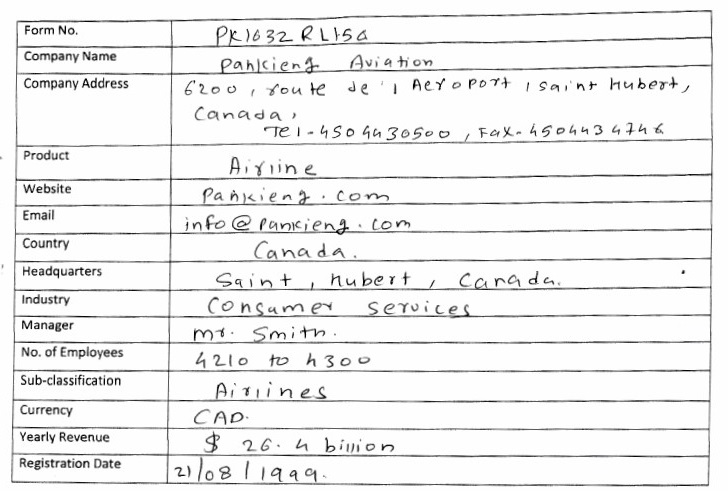 Form No. PK1632RL15G
Company Name Pankieng Aviation
Company Address 6200, route de l Aeroport, saint Hubert,
Canada,
Tel-4504430500, Fax-4504434746
Product Airline
Website Pankieng.com
Email info@pankieng.com
Country Canada.
Headquarters Saint, hubert, Canada.
Industry Consumer services
Manager mr. Smith.
No. of Employees 4210 to 4300
Sub-classification Airlines
Currency CAD.
Yearly Revenue $ 26.4 billion
Registration Date 21/08/1999.